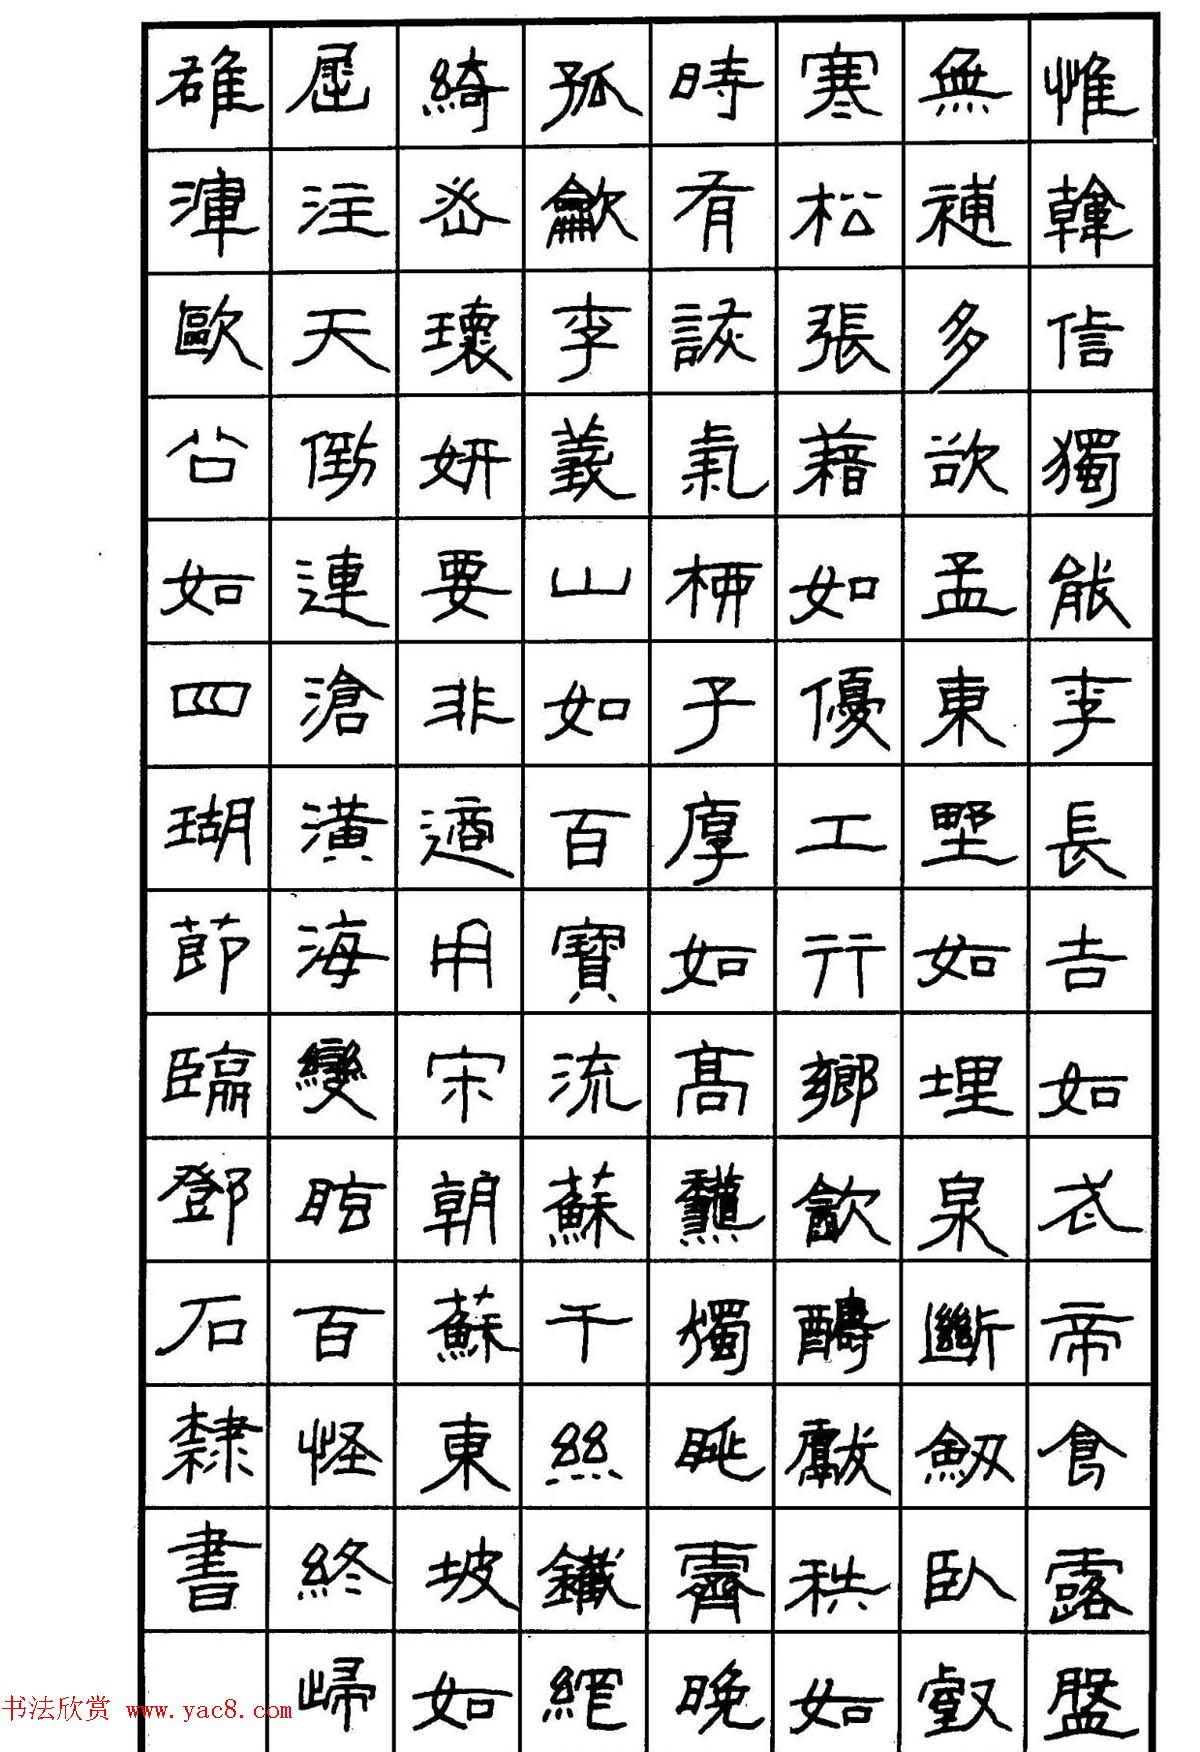 惟韓信獨能李長吉如武帝食露盤
無補多欲孟東野如埋泉斷劒臥壑
寒松張藉如優工行鄉飲醻獻秩如
時有詼氣柳子厚如高秋獨眺霽晚
孤龡李義山如百寶流蘇千絲鐵網
綺密瓌妍要非適用宋朝蘇東坡如
屈注天潢倒連滄海變眩百怪終歸
雄渾歐公如四瑚節臨鄧石隸書
书法欣赏 www.yac8.com